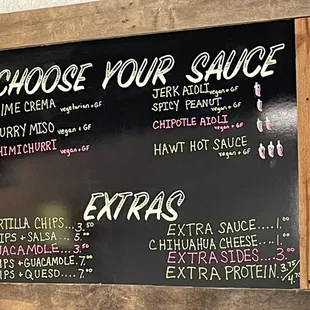 CHOOSE YOUR SAUCE
IME CREMA vegetarian + GF
URRY MISO vegan + GF
HIMICHURRI vegan + GF
JERK AIOLI vegan + GF
SPICY PEANUT vegan + GF
CHIPOTLE AIOLI vegan + GF
HAWT HOT SAUCE vegan + GF
EXTRAS
RTILLA CHIPS...3.50
IPS + SALSA...5.00
UACAMOLE...3.50
IPS + GUACAMOLE.7.00
IPS + QUESO....7.00
EXTRA SAUCE....1.00
CHIHUAHUA CHEESE..1.00
EXTRA SIDES....3.00
EXTRA PROTEIN.3.75/4.70